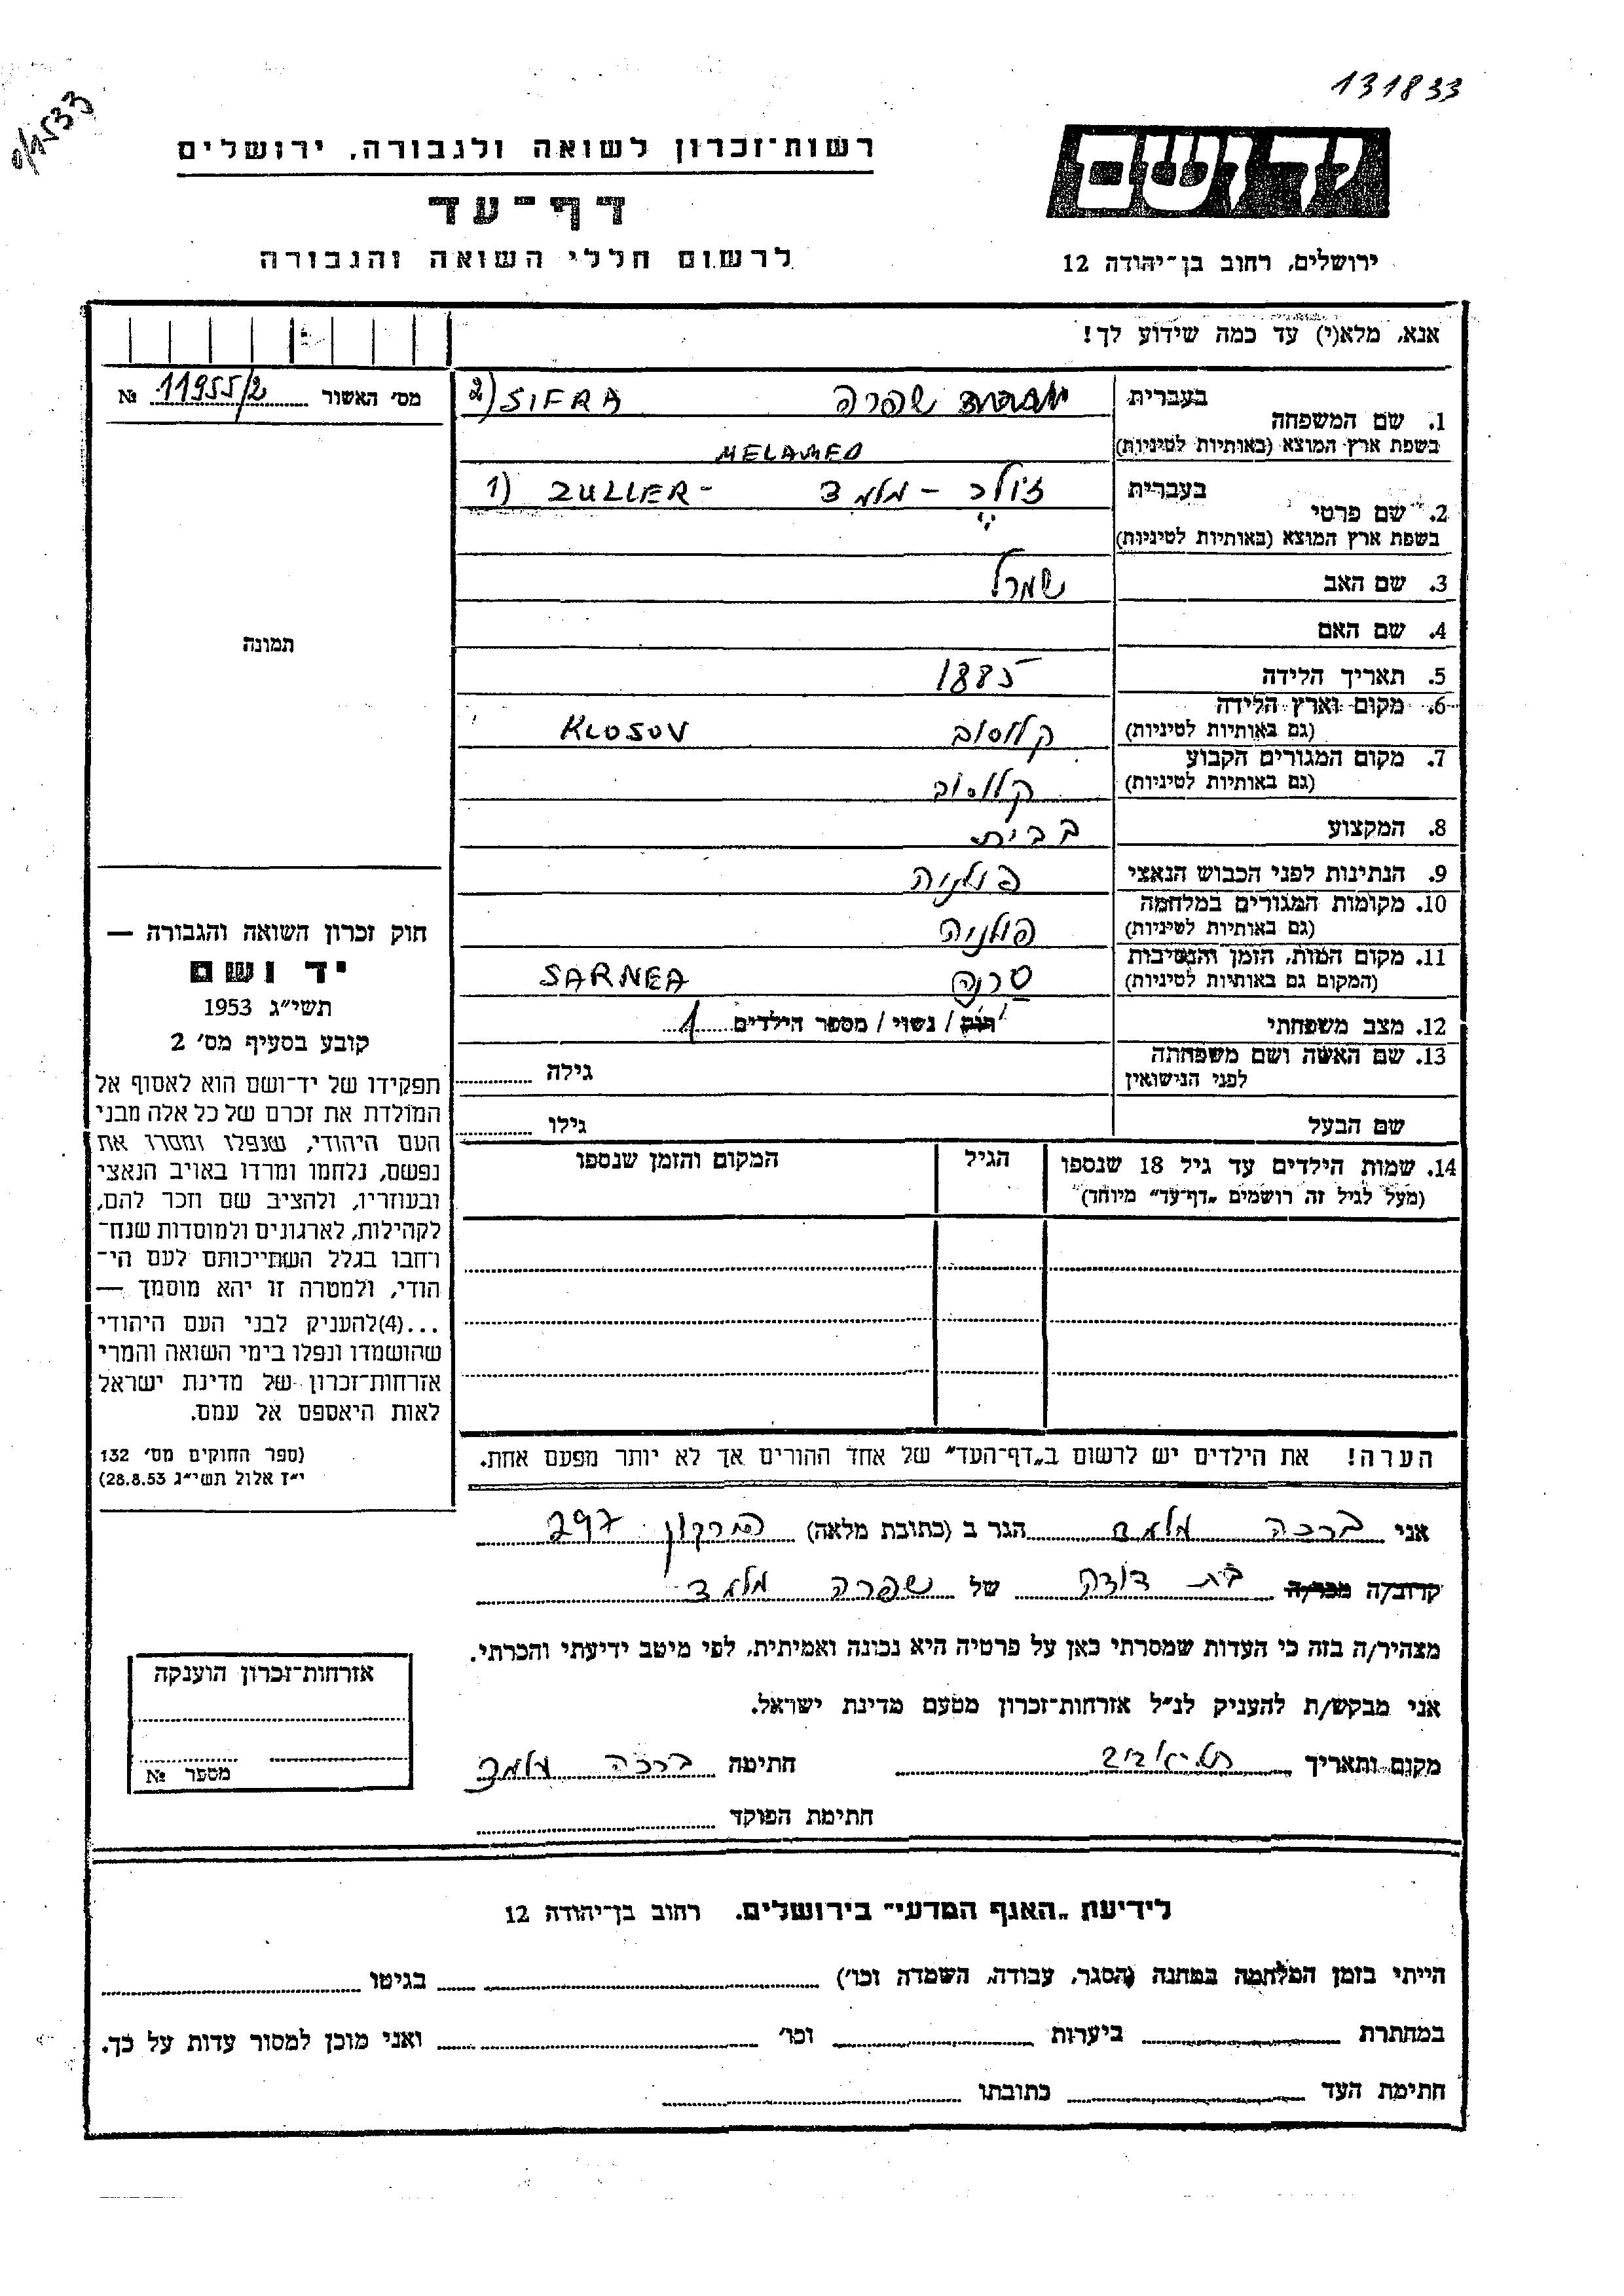 131833
0/1533
רשות־זכרון לשואה ולגבורה, ירושלים
יד ושם
דף־עד
ירושלים, רחוב בן־יהודה 12
לרשום חללי השואה והגבורה
אנא, מלא(י) עד כמה שידוע לך!
מס׳ האשור 11955/2 №
1. שם המשפחה
בעברית שפרה 2) SIFRA
בשפת ארץ המוצא (באותיות לטיניות) MELAMED
2. שם פרטי
בעברית זולר - מלמד 1) ZULLER-
בשפת ארץ המוצא (באותיות לטיניות)
3. שם האב שמרל
4. שם האם
5. תאריך הלידה 1885
6. מקום וארץ הלידה
(גם באותיות לטיניות) קלוסוב KLOSOV
7. מקום המגורים הקבוע
(גם באותיות לטיניות) קלוסוב
8. המקצוע בבית
9. הנתינות לפני הכבוש הנאצי פולניה
10. מקומות המגורים במלחמה
(גם באותיות לטיניות) פולניה
11. מקום המות, הזמן והנסיבות
(המקום גם באותיות לטיניות) סרנה SARNEA
12. מצב משפחתי רווק / נשוי / מספר הילדים 1
13. שם האשה ושם משפחתה
לפני הנישואין גילה
שם הבעל גילו
14. שמות הילדים עד גיל 18 שנספו הגיל המקום והזמן שנספו
(מעל לגיל זה רושמים „דף־עד״ מיוחד)
הערה! את הילדים יש לרשום ב„דף־העד״ של אחד ההורים אך לא יותר מפעם אחת.
תמונה
חוק זכרון השואה והגבורה —
יד ושם
תשי״ג 1953
קובע בסעיף מס׳ 2
תפקידו של יד־ושם הוא לאסוף אל
המולדת את זכרם של כל אלה מבני
העם היהודי, שנפלו ומסרו את
נפשם, נלחמו ומרדו באויב הנאצי
ובעוזריו, ולהציב שם וזכר להם,
לקהילות, לארגונים ולמוסדות שנח־
רחבו בגלל השתייכותם לעם הי־
הודי, ולמטרה זו יהא מוסמך —
...(4)להעניק לבני העם היהודי
שהושמדו ונפלו בימי השואה והמרי
אזרחות־זכרון של מדינת ישראל
לאות היאספם אל עמם.
(ספר החוקים מס׳ 132
י״ז אלול תשי״ג 28.8.53)
אני ברכה מלמד הגר ב (כתובת מלאה) הירקון 297
קרוב/ה מכר/ה בת דודה של שפרה מלמד
מצהיר/ה בזה כי העדות שמסרתי כאן על פרטיה היא נכונה ואמיתית, לפי מיטב ידיעתי והכרתי.
אני מבקש/ת להעניק לנ״ל אזרחות־זכרון מטעם מדינת ישראל.
מקום ותאריך תל־אביב חתימה ברכה מלמד
חתימת הפוקד
אזרחות־זכרון הוענקה
מספר №
לידיעת „האגף המדעי״ בירושלים. רחוב בן־יהודה 12
הייתי בזמן המלחמה במחנה (הסגר, עבודה, השמדה וכו׳) בגיטו
במחתרת ביערות וכו׳ ואני מוכן למסור עדות על כך.
חתימת העד כתובתו